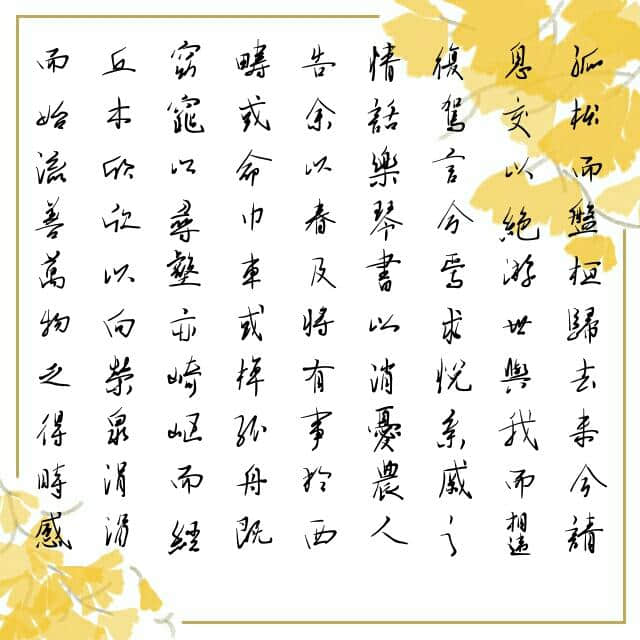 孤松而盤桓歸去来兮請
息交以絕游世與我而相違
復駕言兮焉求悅亲戚之
情話樂琴書以消憂農人
告余以春及將有事於西
疇或命巾車或棹孤舟既
窈窕以尋壑亦崎嶇而經
丘木欣欣以向榮泉涓涓
而始流善萬物之得時感